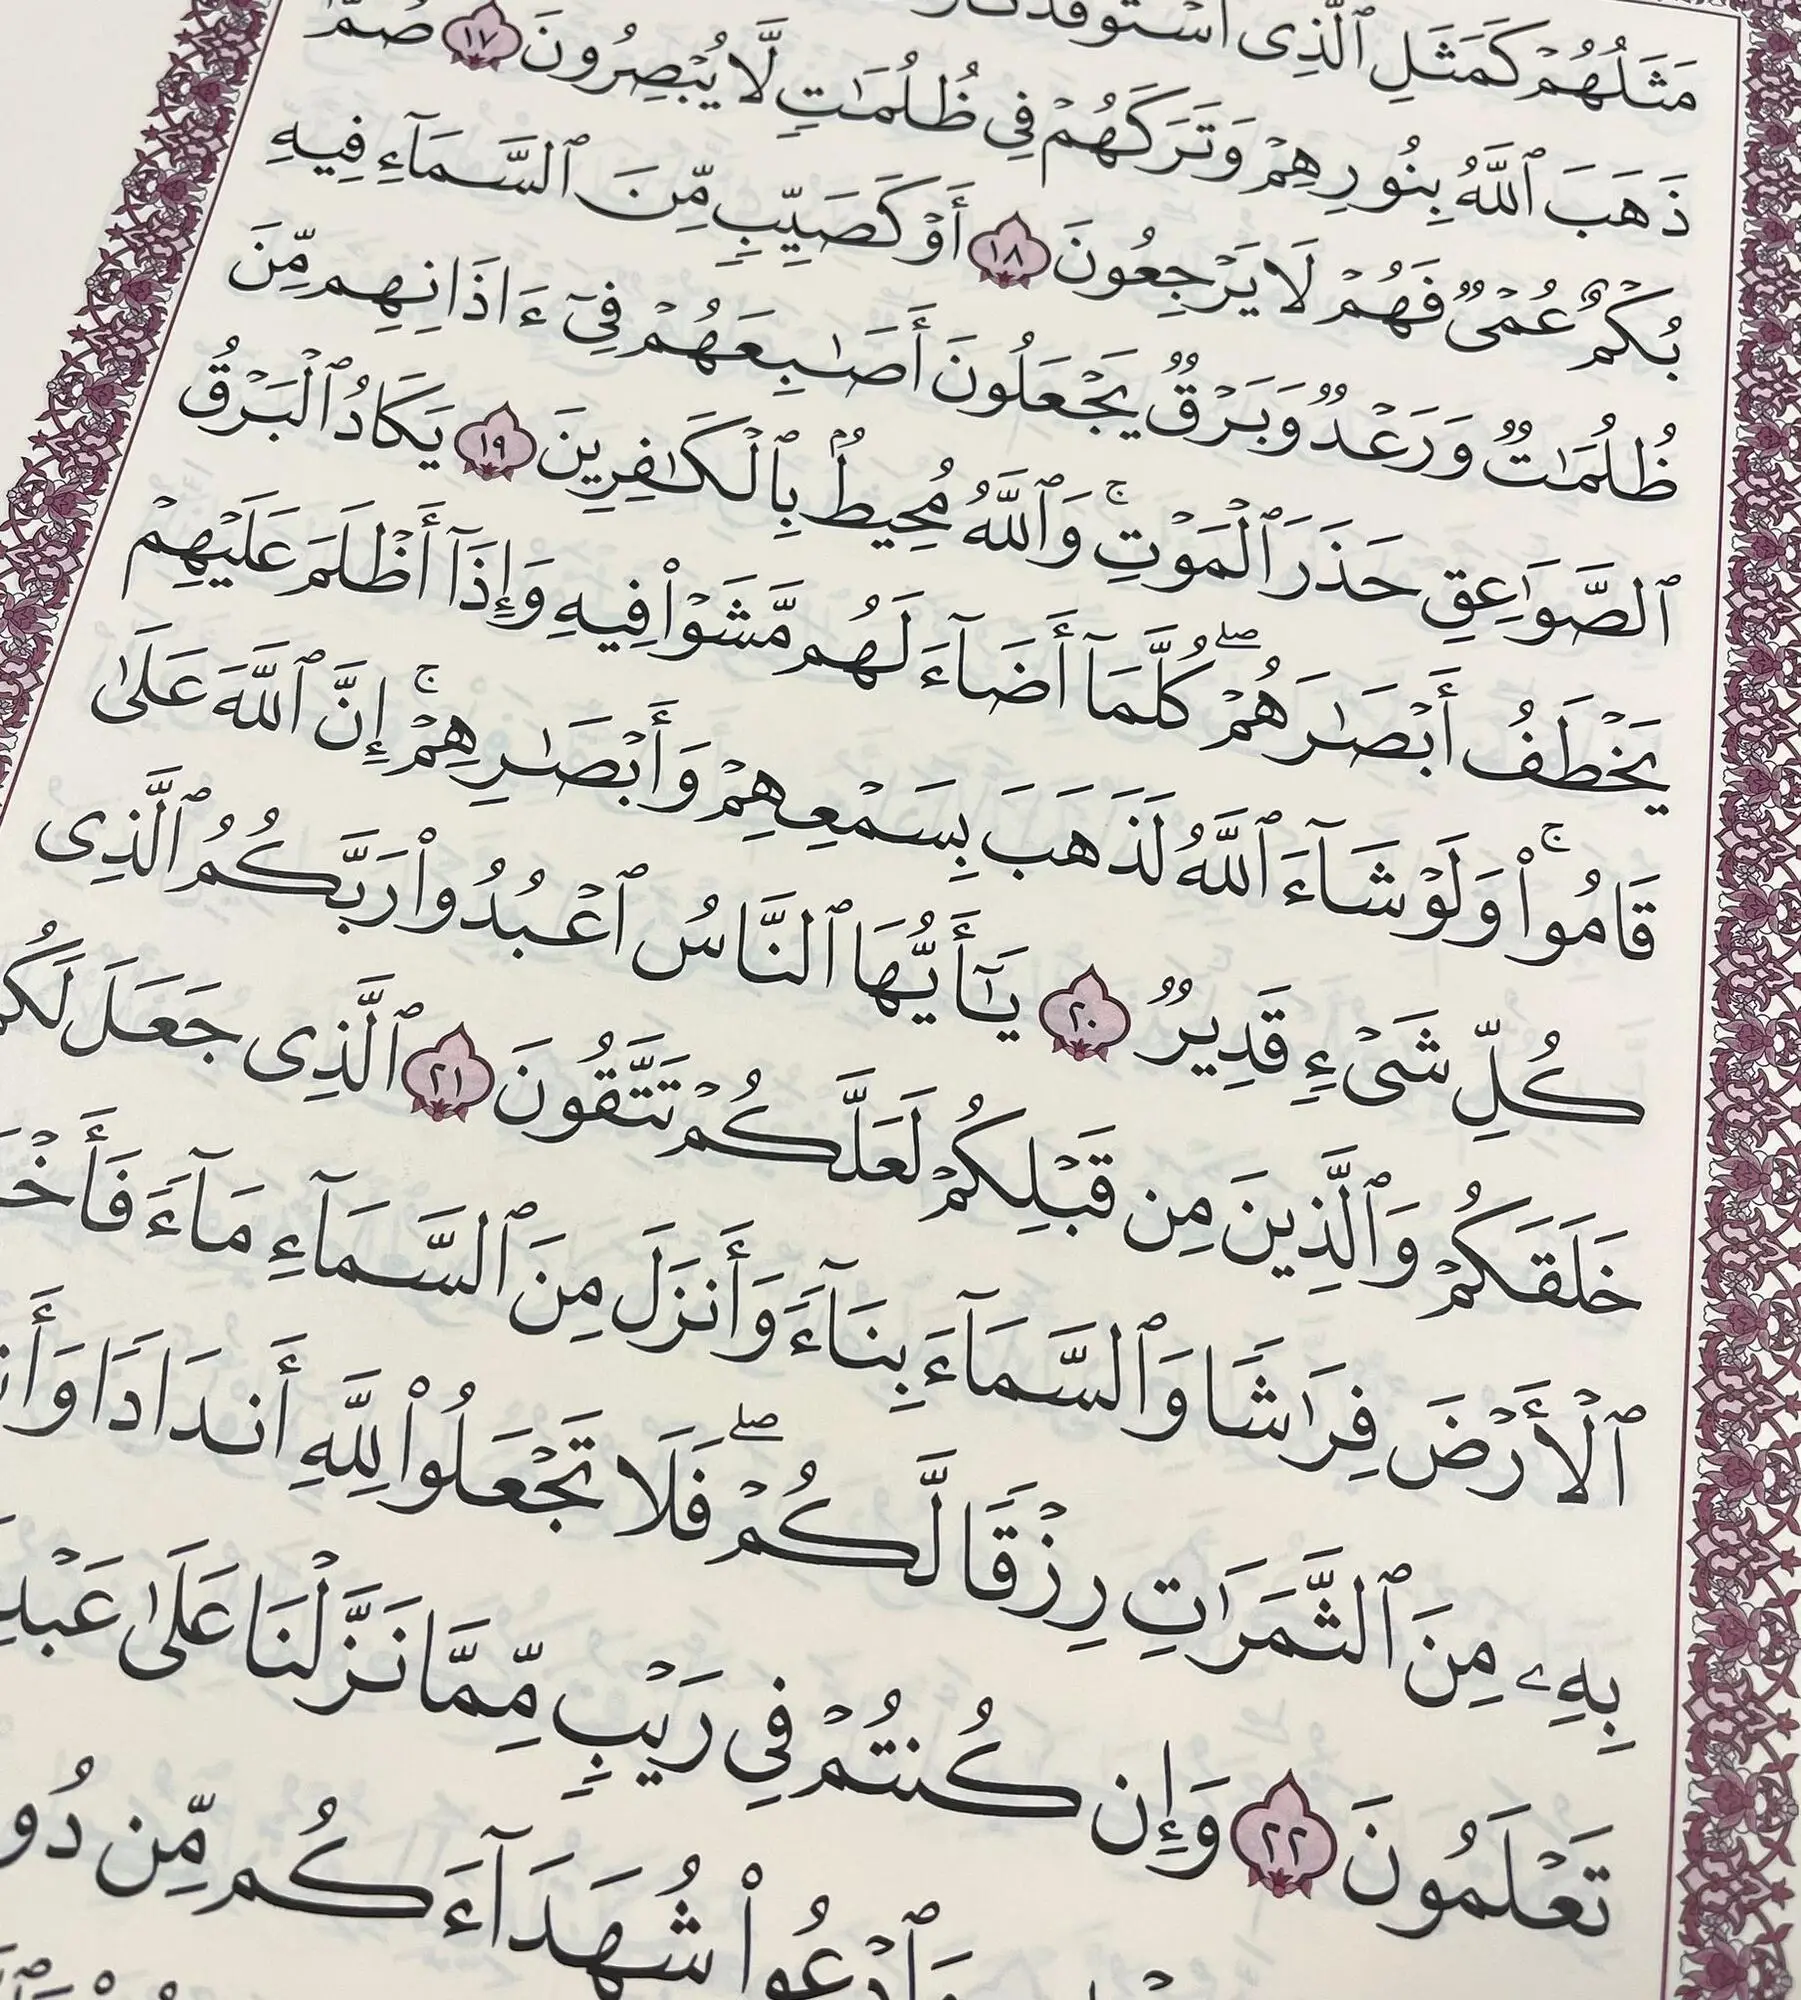 مَثَلُهُمۡ كَمَثَلِ ٱلَّذِي ٱسۡتَوۡقَدَ
ذَهَبَ ٱللَّهُ بِنُورِهِمۡ وَتَرَكَهُمۡ فِي ظُلُمَٰتٖ لَّا يُبۡصِرُونَ ١٧ صُمُّۢ
بُكۡمٌ عُمۡيٞ فَهُمۡ لَا يَرۡجِعُونَ ١٨ أَوۡ كَصَيِّبٖ مِّنَ ٱلسَّمَآءِ فِيهِ
ظُلُمَٰتٞ وَرَعۡدٞ وَبَرۡقٞ يَجۡعَلُونَ أَصَٰبِعَهُمۡ فِيٓ ءَاذَانِهِم مِّنَ
ٱلصَّوَٰعِقِ حَذَرَ ٱلۡمَوۡتِۚ وَٱللَّهُ مُحِيطُۢ بِٱلۡكَٰفِرِينَ ١٩ يَكَادُ ٱلۡبَرۡقُ
يَخۡطَفُ أَبۡصَٰرَهُمۡۖ كُلَّمَآ أَضَآءَ لَهُم مَّشَوۡاْ فِيهِ وَإِذَآ أَظۡلَمَ عَلَيۡهِمۡ
قَامُواْۚ وَلَوۡ شَآءَ ٱللَّهُ لَذَهَبَ بِسَمۡعِهِمۡ وَأَبۡصَٰرِهِمۡۚ إِنَّ ٱللَّهَ عَلَىٰ
كُلِّ شَيۡءٖ قَدِيرٞ ٢٠ يَٰٓأَيُّهَا ٱلنَّاسُ ٱعۡبُدُواْ رَبَّكُمُ ٱلَّذِي
خَلَقَكُمۡ وَٱلَّذِينَ مِن قَبۡلِكُمۡ لَعَلَّكُمۡ تَتَّقُونَ ٢١ ٱلَّذِي جَعَلَ لَكُمُ
ٱلۡأَرۡضَ فِرَٰشٗا وَٱلسَّمَآءَ بِنَآءٗ وَأَنزَلَ مِنَ ٱلسَّمَآءِ مَآءٗ
بِهِۦ مِنَ ٱلثَّمَرَٰتِ رِزۡقٗا لَّكُمۡۖ فَلَا تَجۡعَلُواْ لِلَّهِ أَندَادٗا
تَعۡلَمُونَ ٢٢ وَإِن كُنتُمۡ فِي رَيۡبٖ مِّمَّا نَزَّلۡنَا عَلَىٰ
وَٱدۡعُواْ شُهَدَآءَكُم مِّن